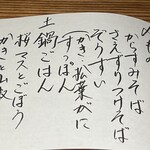 からすみそば
さえずりつけそば
ぞうすい
かき 松葉がに
すっぽん
土鍋ごはん
桜マスとごぼう